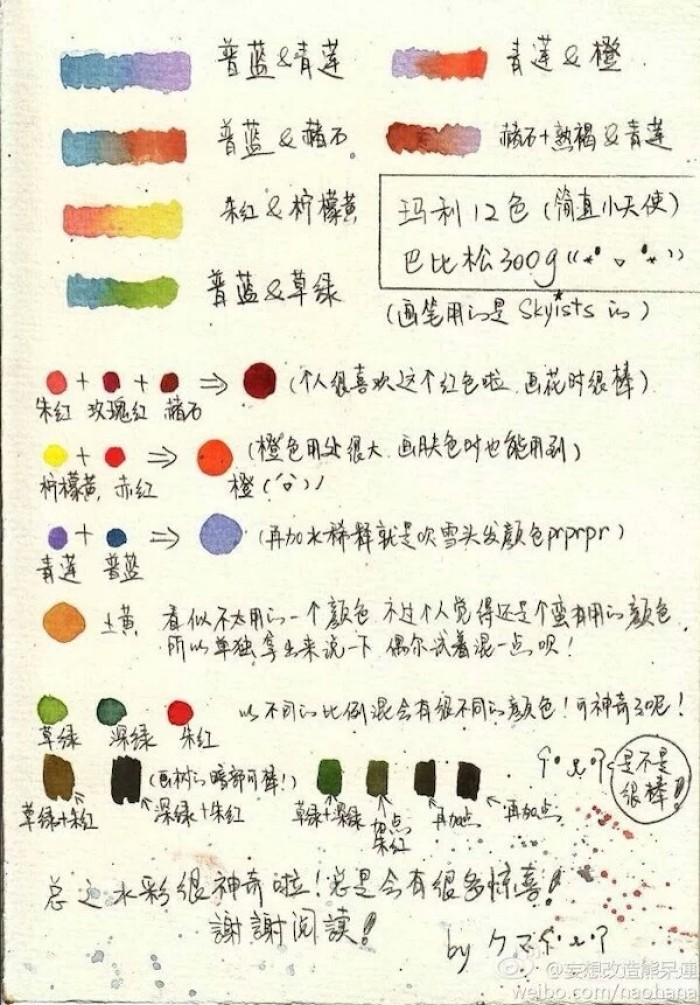 普蓝&青莲
青莲&橙
普蓝&赭石。
赭石+熟褐&青莲
朱红&柠檬黄
普蓝&草绿
玛利12色(简直小天使)
巴比松300g
(画笔用的是 Skyists 的)
+ + ⇒ (个人很喜欢这个红色啦,画花时很棒)
朱红 玫瑰红 赭石
+ ⇒ (橙色用处很大,画肤色时也能用到)
柠檬黄 赤红 橙
+ ⇒ (再加水稀释就是吹雪头发颜色prprpr)
青莲 普蓝
土黄 看似不太用的一个颜色,不过个人觉得还是个蛮有用的颜色
所以单独拿出来说一下,偶尔试着混一点呗!
以不同的比例混会有很不同的颜色!可神奇了呢!
草绿 深绿 朱红
(画树的暗部可棒!)
草绿+朱红 深绿+朱红
草绿+深绿 加点朱红 再加点 再加点
是不是
很棒!
总之水彩很神奇啦!总是会有很多惊喜!
謝謝阅读!
by クマ
@妄想改造熊呆連
weibo.com/naohana